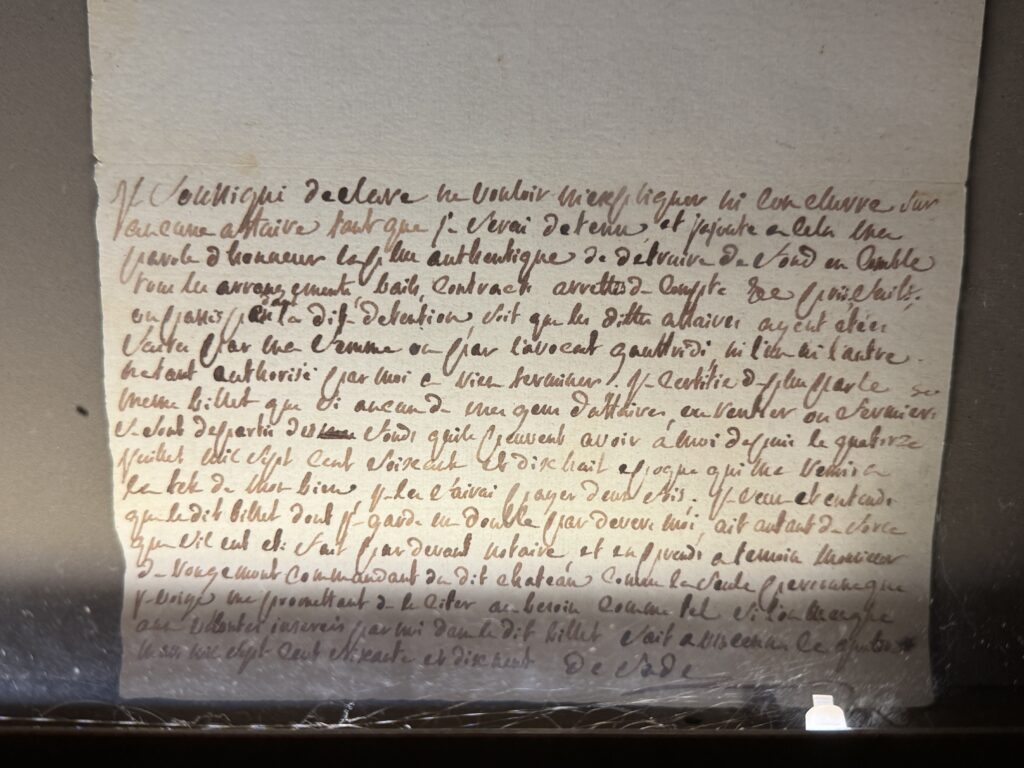 Je soussigné declare ne vouloir m'expliquer ni conclurre sur
aucune affaire tant que je serai detenu, et j'ajoute a cela ma
parole d'honneur la plus authentique de détruire de fond en comble
tous les arrangements, bails, contracts arrettés de compte &c faits
ou passés pendant la dite detention, soit que les dittes affaires ayent étées
faites par ma femme ou par l'avocat gauffridi, ni l'un ni l'autre
netant authorisé par moi a rien terminer. Je certifie de plus par le
meme billet que si aucun de mes gens d'affaires en rentier ou fermiers
se sont departis des fonds quils peuvent avoir à moi depuis le quatorze
Juillet mil sept cent soixante et dix huit epoque qui me remit a
la tete de mon bien, je les ferai payer deux fois. Je veux et entends
que le dit billet dont je garde un double par devers moi, ait autant de force
que s'il eut eté fait par devant notaire et en prends a temoin monsieur
de rougemont commandant du dit chateau comme la seule personne que
je voye me promettant de le citer au besoin comme tel si l'on manque
aux volontés inserées par moi dans le dit billet fait a vincennes ce
mil sept cent soixante et dix neuf De Sade